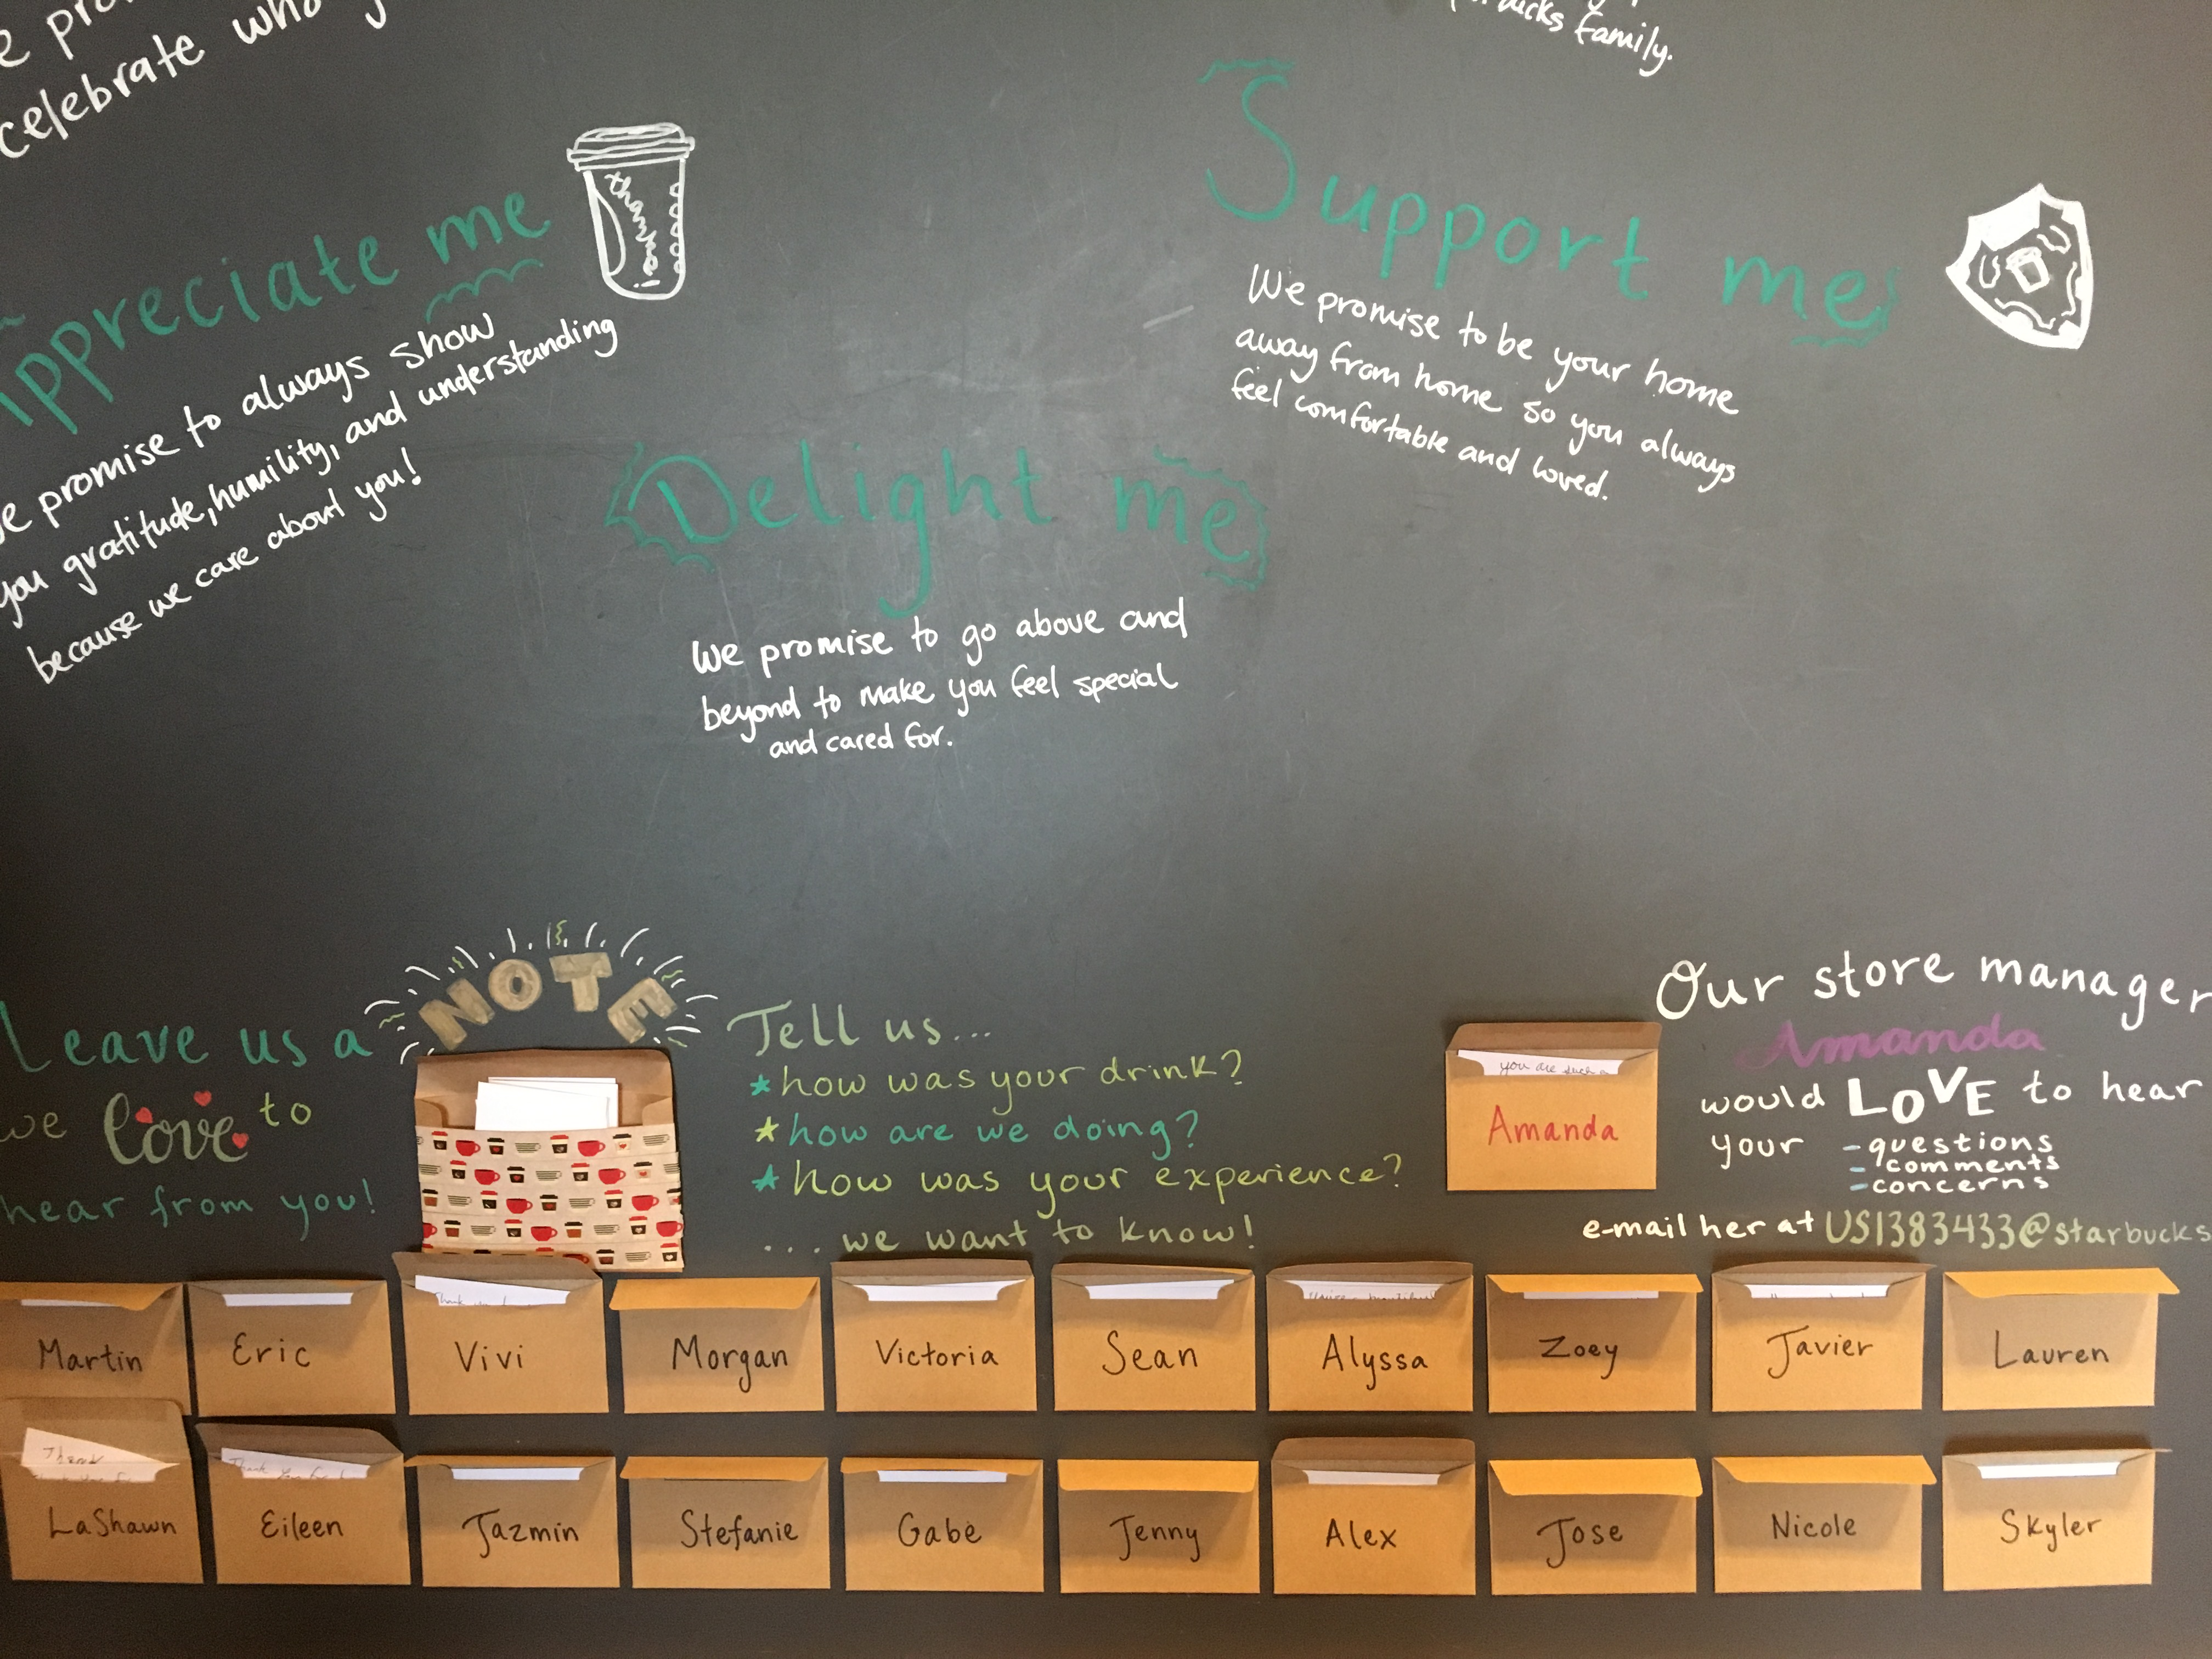 celebrate who
Family.
Appreciate me
thank you!
promise to always show
you gratitude, humility, and understanding
because we care about you!
Support me
We promise to be your home
away from home so you always
feel comfortable and loved.
Delight me
We promise to go above and
beyond to make you feel special
and cared for.
Leave us a
NOTE
we love to
hear from you!
Tell us...
how was your drink?
how are we doing?
how was your experience?
... we want to know!
you are such a
Amanda
Our store manager
Amanda
would LOVE to hear
your - questions
- comments
- concerns
e-mail her at US1383433@starbucks
Martin
Eric
Vivi
Morgan
Victoria
Sean
Alyssa
Zoey
Javier
Lauren
Thank
LaShawn
Thank you for
Eileen
Jazmin
Stefanie
Gabe
Jenny
Alex
Jose
Nicole
Skyler